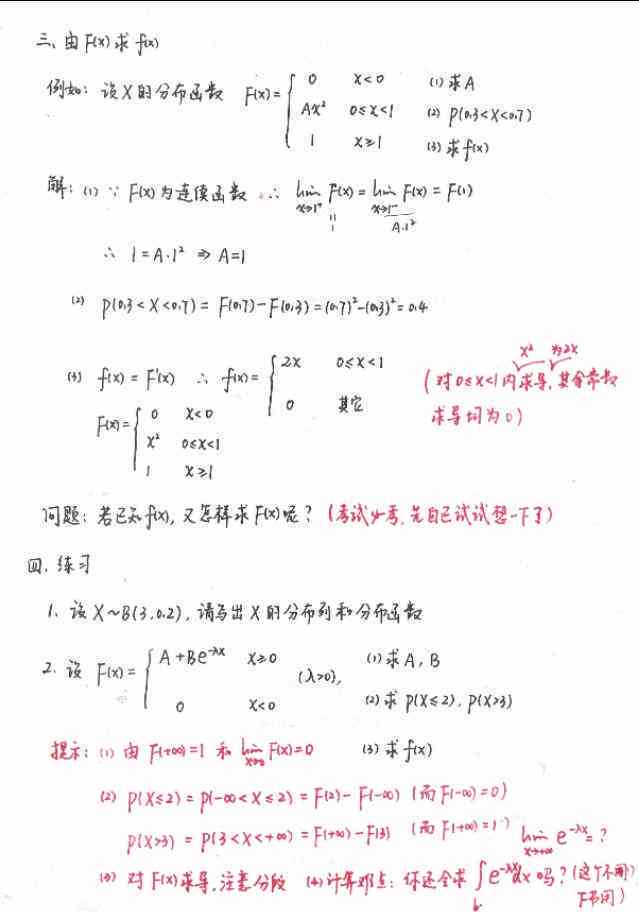 三、由F(x)求f(x)
例如：设X的分布函数 F(x)={ 0 x<0 (1)求A
Ax² 0≤x<1 (2) P(0.3<X<0.7)
1 x≥1 (3)求f(x)
解：(1) ∵ F(x)为连续函数 ∴ lim x→1⁺ F(x) = lim x→1⁻ F(x) = F(1)
1 A·1²
∴ 1=A·1² ⇒ A=1
(2) P(0.3<X<0.7) = F(0.7)-F(0.3) = (0.7)²-(0.3)² = 0.4
x² 为2x
(3) f(x) = F'(x) ∴ f(x)={ 2x 0≤x<1 (对0≤x<1内求导,其余常数
0 其它 求导均为0)
F(x)={ 0 x<0
x² 0≤x<1
1 x≥1
问题：若已知f(x), 又怎样求F(x)呢？(考试必考,先自己试试想一下了)
四、练习
1、设X~B(3,0.2), 请写出X的分布列和分布函数
2、设 F(x)={ A+Be^{-λx} x≥0 (λ>0), (1)求A, B
0 x<0 (2)求 P(X≤2), P(X>3)
提示：(1) 由F(+∞)=1 和 lim x→0 F(x)=0 (3)求f(x)
(2) P(X≤2) = P(-∞<X≤2) = F(2)-F(-∞) (而F(-∞)=0)
P(X>3) = P(3<X<+∞) = F(+∞)-F(3) (而F(+∞)=1) lim x→+∞ e^{-λx}=?
(3) 对F(x)求导,注意分段 (4)计算难点：你还会求∫e^{-λx}dx吗？(这个不用)